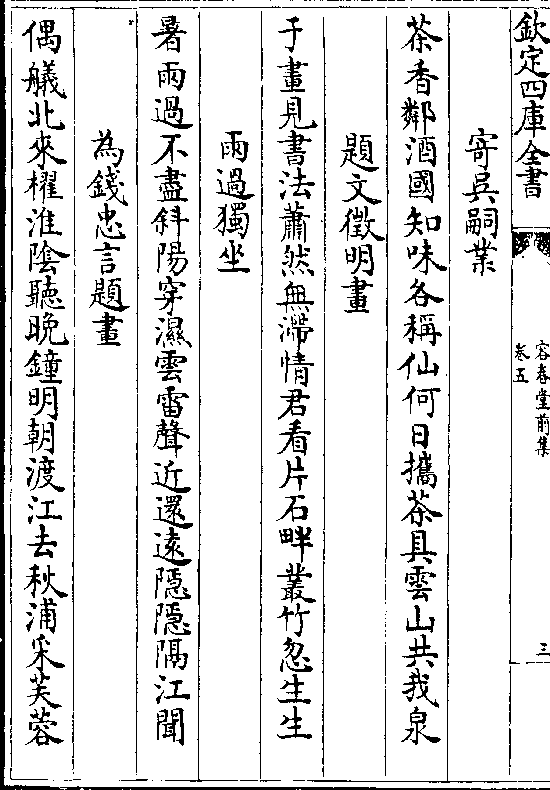 欽定四庫全書
容春堂前集
卷五
三
寄吳嗣業
茶香鄰酒國知味各稱仙何日攜茶具雲山共我泉
題文徵明畫
于畫見書法蕭然無滯情君看片石畔叢竹忽生生
雨過獨坐
暑雨過不盡斜陽穿濕雲雷聲近還遠隱隱隔江聞
為錢忠言題畫
偶艤北來櫂淮陰聽晚鐘明朝渡江去秋浦采芙蓉